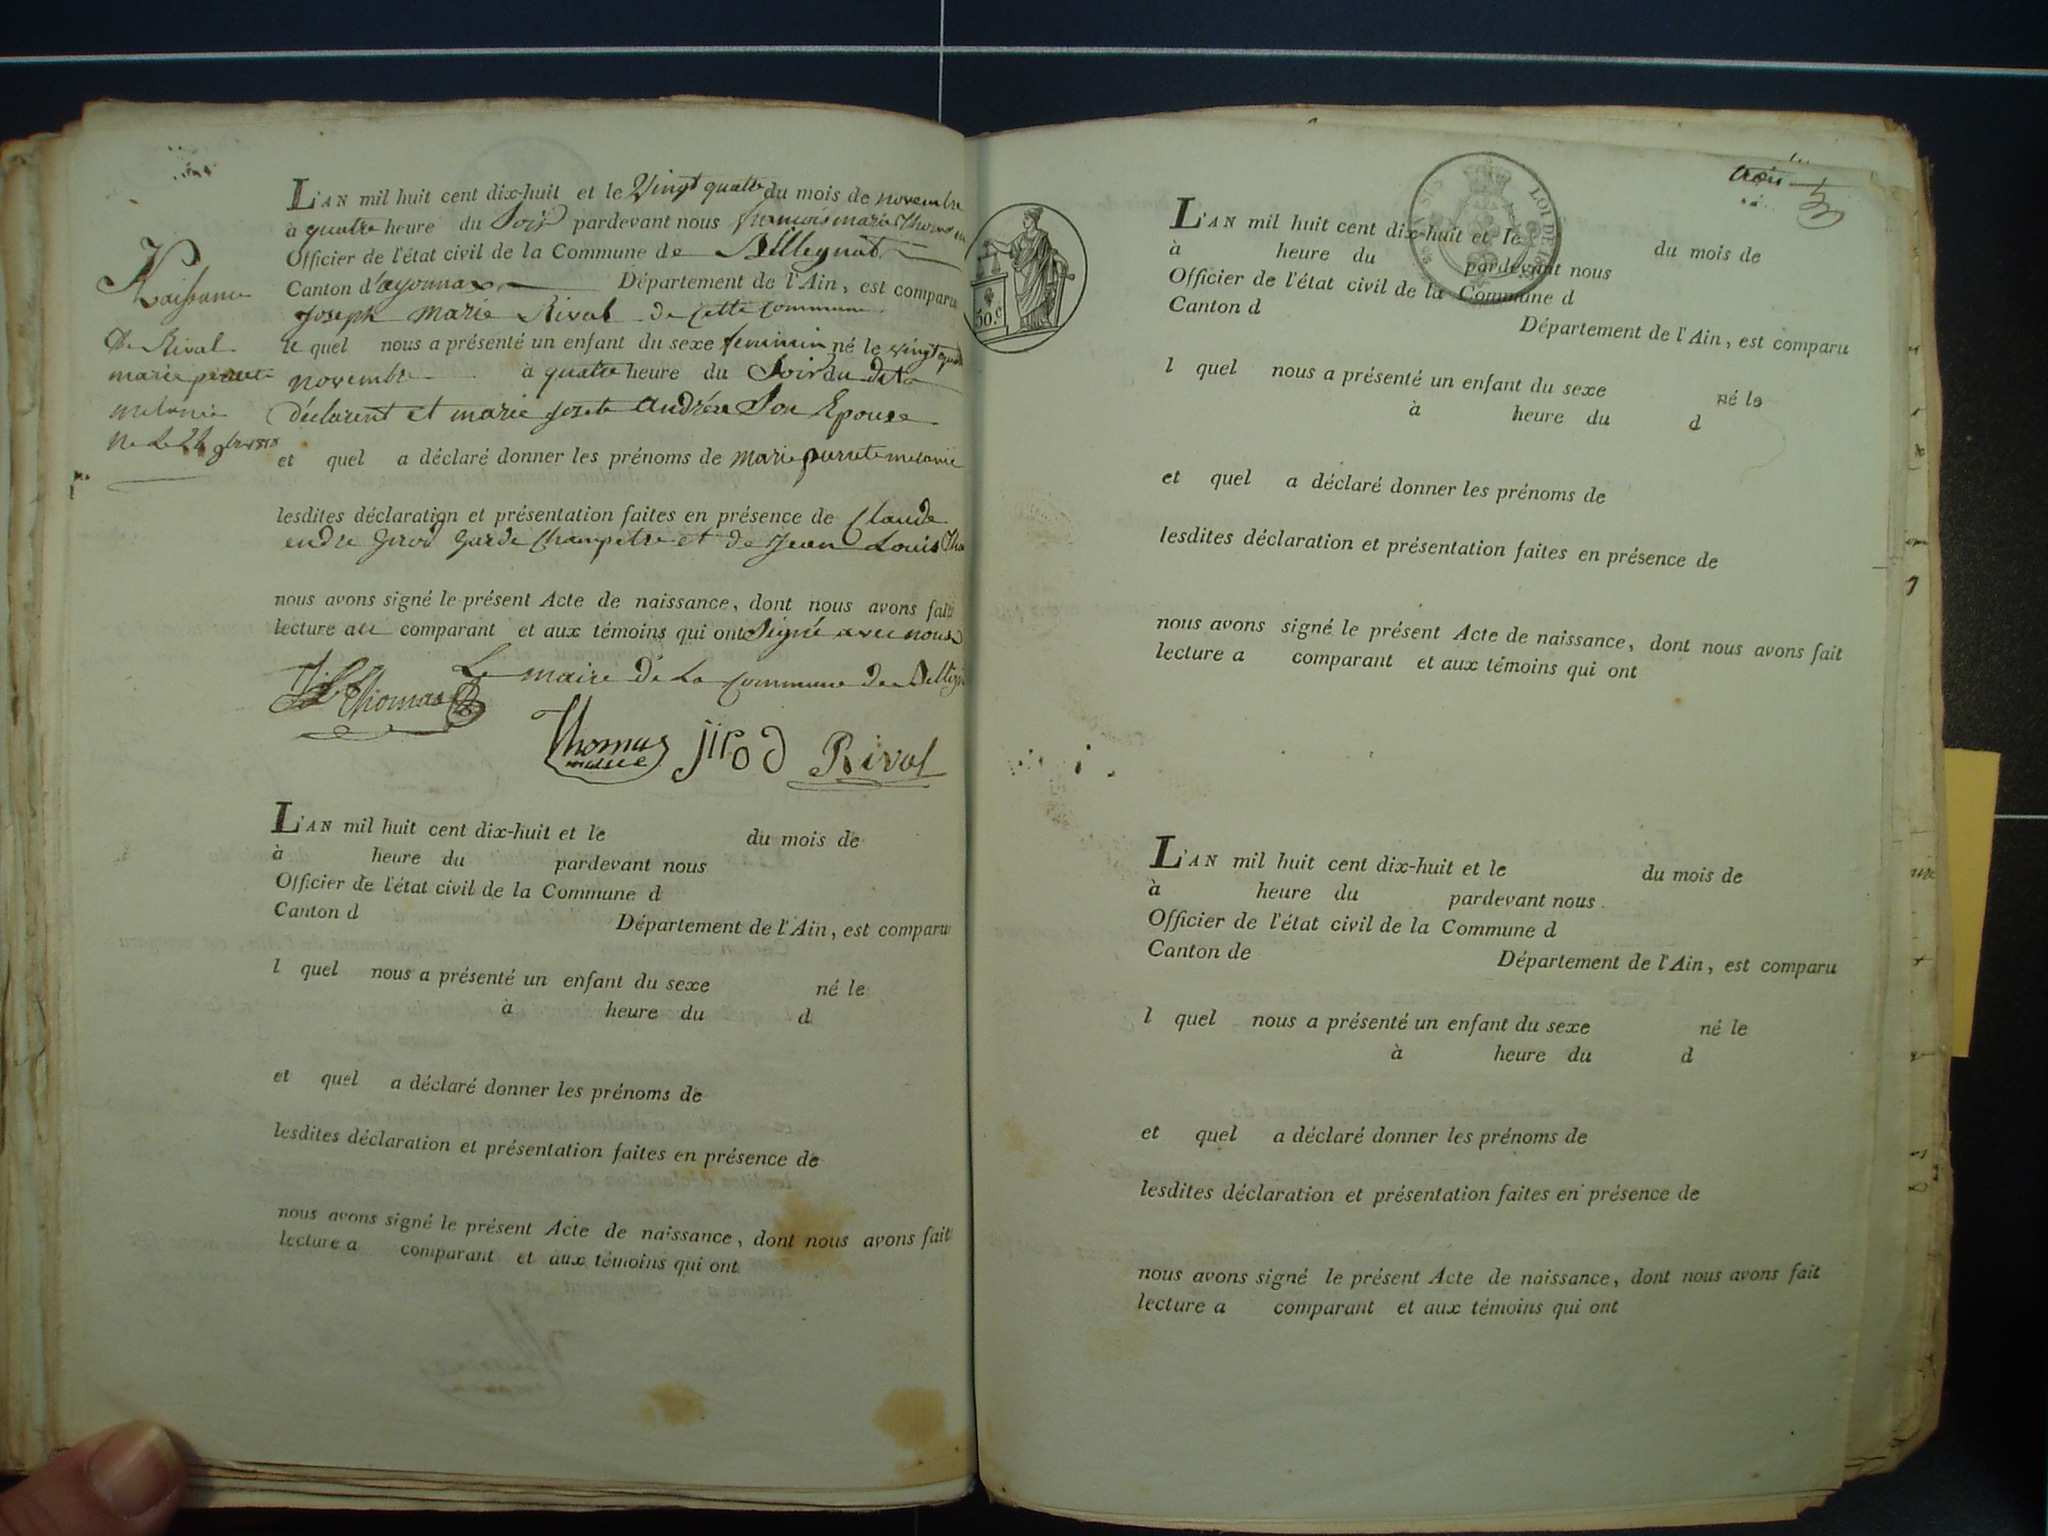 Naissance
De Rival
marie perrete
melanie
Ne Le 24 9bre 1818
L'AN mil huit cent dix-huit et le Vingt quatre du mois de novembre
à quatre heure du Soir pardevant nous francois marie Thomas
Officier de l'état civil de la Commune de Bellegnat
Canton d'oyonnax Département de l'Ain, est comparu
Joseph Marie Rival de Cette Commune
le quel nous a présenté un enfant du sexe feminin né le vingt quatre
novembre à quatre heure du Soir du dit
déclarent et marie josete Andréa Son Epouse
et quel a déclaré donner les prénoms de marie perrete melanie
lesdites déclaration et présentation faites en présence de Claude
endre Jirod Garde Champetre et de Jean Louis Tho
nous avons signé le présent Acte de naissance, dont nous avons fait
lecture au comparant et aux témoins qui ont Signé avec nous
Le maire De La Commune de Bellign
Thomas
Thomas jirod Rival
maire
L'AN mil huit cent dix-huit et le du mois de
à heure du pardevant nous
Officier de l'état civil de la Commune d
Canton d Département de l'Ain, est comparu
l quel nous a présenté un enfant du sexe né le
à heure du d
et quel a déclaré donner les prénoms de
lesdites déclaration et présentation faites en présence de
nous avons signé le présent Acte de naissance, dont nous avons fait
lecture a comparant et aux témoins qui ont
50.c
trois
LOI DE
L'AN mil huit cent dix-huit et le du mois de
à heure du pardevant nous
Officier de l'état civil de la Commune d
Canton d Département de l'Ain, est comparu
l quel nous a présenté un enfant du sexe né le
à heure du d
et quel a déclaré donner les prénoms de
lesdites déclaration et présentation faites en présence de
nous avons signé le présent Acte de naissance, dont nous avons fait
lecture a comparant et aux témoins qui ont
L'AN mil huit cent dix-huit et le du mois de
à heure du pardevant nous
Officier de l'état civil de la Commune d
Canton de Département de l'Ain, est comparu
l quel nous a présenté un enfant du sexe né le
à heure du d
et quel a déclaré donner les prénoms de
lesdites déclaration et présentation faites en présence de
nous avons signé le présent Acte de naissance, dont nous avons fait
lecture a comparant et aux témoins qui ont